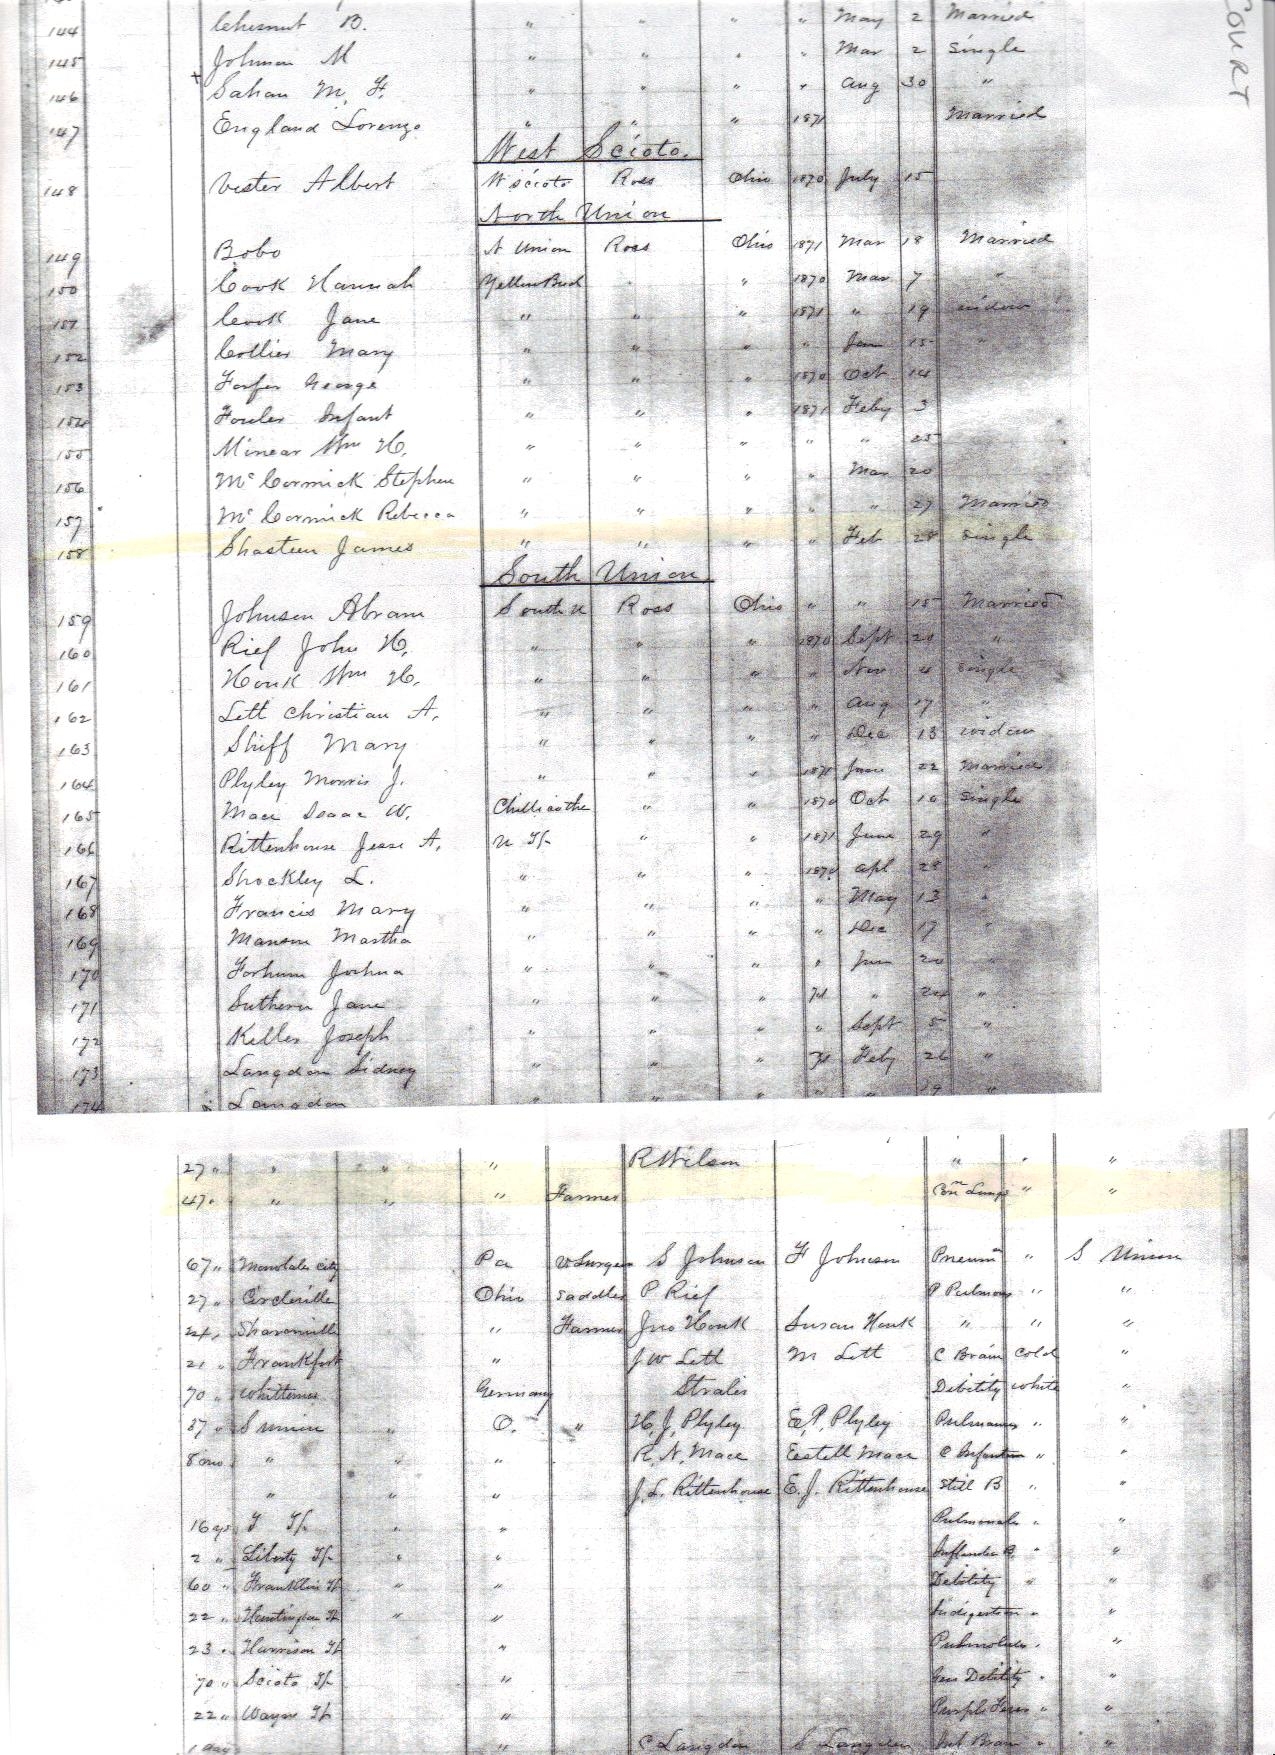 COURT
144 Chesnut B. " " " " May 2 Married
145 Johnson M " " " " Mar 2 Single
146 + Sahan M. F. " " " " Aug 30 "
147 England Lorenzo " " " 1871 Married
West Scioto.
148 Vester Albert W Scioto Ross Ohio 1870 July 15
North Union
149 Bobo N Union Ross Ohio 1871 Mar 18 Married
150 Cook Hannah Yellow Bud " " 1870 Mar 7 "
151 Cook Jane " " " 1871 " 19 widow
152 Collier Mary " " " " Jan 15 "
153 George " " " 1870 Oct 14
154 Fouler Infant " " " 1871 Feby 3
155 Minear Wm H. " " " " " 25
156 McCormick Stephen " " " " Mar 20
157 McCormick Rebecca " " " " " 27 Married
158 Shasteen James " " " " Feb 28 Single
South Union
159 Johnson Abram South U Ross Ohio " " 15 Married
160 Rief John H. " " " 1870 Sept 20 "
161 Houk Wm H. " " " " Nov 4 Single
162 Lett Christian A. " " " " Aug 17 "
163 Shiff Mary " " " " Dec 13 widow
164 Plyley Morris J. " " " 1871 June 22 Married
165 Mace Isaac W. Chillicothe " " 1870 Oct 10 Single
166 Rittenhouse Jesse A. U Tp " " 1871 June 29 "
167 Shockley L. " " " 1870 Apl 28 "
168 Francis Mary " " " " May 13 "
169 Manson Martha " " " " Dec 17 "
170 Joshua " " " " Jun 20 "
171 Suthern Jane " " " 71 " 24 "
172 Keller Joseph " " " " Sept 5 "
173 Langdon Sidney " " " 71 Feby 26 "
174 Langdon " " " " " 19 "
27 " " " " R Wilson " " "
47 " " " " Farmer Con Lungs " "
67 " City Pa S Johnson F Johnson Pneum " S Union
27 " Circleville Ohio Saddler P Rief P Pulmon " "
24 " Sharonville " Farmer Jno Houk Susan Houk " " "
21 " Frankfort " J W Lett M Lett C Brain Cold "
70 " Germany Debility White "
37 " S Union " O. " H. J. Plyley E. P. Plyley "
8 mo " " " R. N. Mace Estell Mace C Infantum " "
" " " J. L. Rittenhouse E. J. Rittenhouse Still B " "
16 ys Tp " " " "
2 " Liberty Tp " " B. " "
60 " Franklin Tp " " Debility " "
22 " Huntington Tp " " Indigestion " "
23 " Harrison Tp " " "
70 " Scioto Tp " Gen Debility " "
22 " Wayne Tp " " "
1 day " C Langdon S Langdon Brain " "